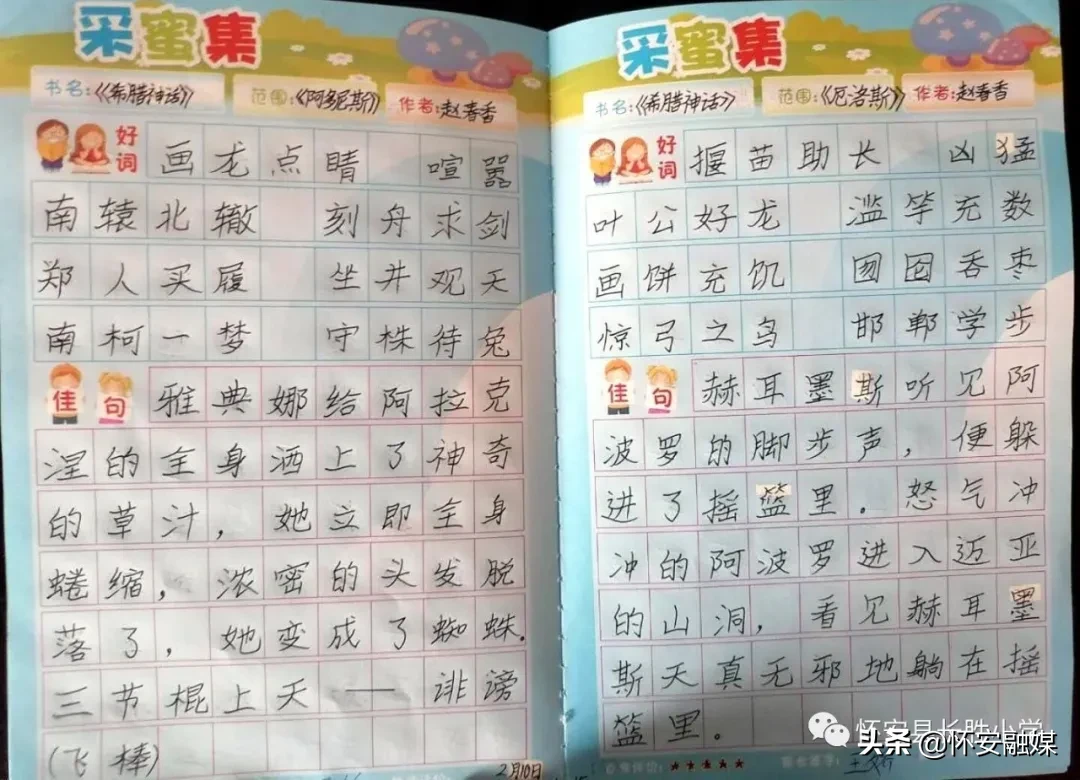 采蜜集
书名:《希腊神话》 范围:《阿多尼斯》 作者:赵春香
好词 画龙点睛 喧嚣
南辕北辙 刻舟求剑
郑人买履 坐井观天
南柯一梦 守株待兔
佳句 雅典娜给阿拉克
涅的全身洒上了神奇
的草汁，她立即全身
蜷缩，浓密的头发脱
落了，她变成了蜘蛛.
三节棍上天——诽谤
(飞棒)
2月10日
采蜜集
书名:《希腊神话》 范围:《厄洛斯》 作者:赵春香
好词 揠苗助长 凶猛
叶公好龙 滥竽充数
画饼充饥 囫囵吞枣
惊弓之鸟 邯郸学步
佳句 赫耳墨斯听见阿
波罗的脚步声，便躲
进了摇篮里。怒气冲
冲的阿波罗进入迈亚
的山洞，看见赫耳墨
斯天真无邪地躺在摇
篮里。
怀安县长胜小学
头条@怀安融媒